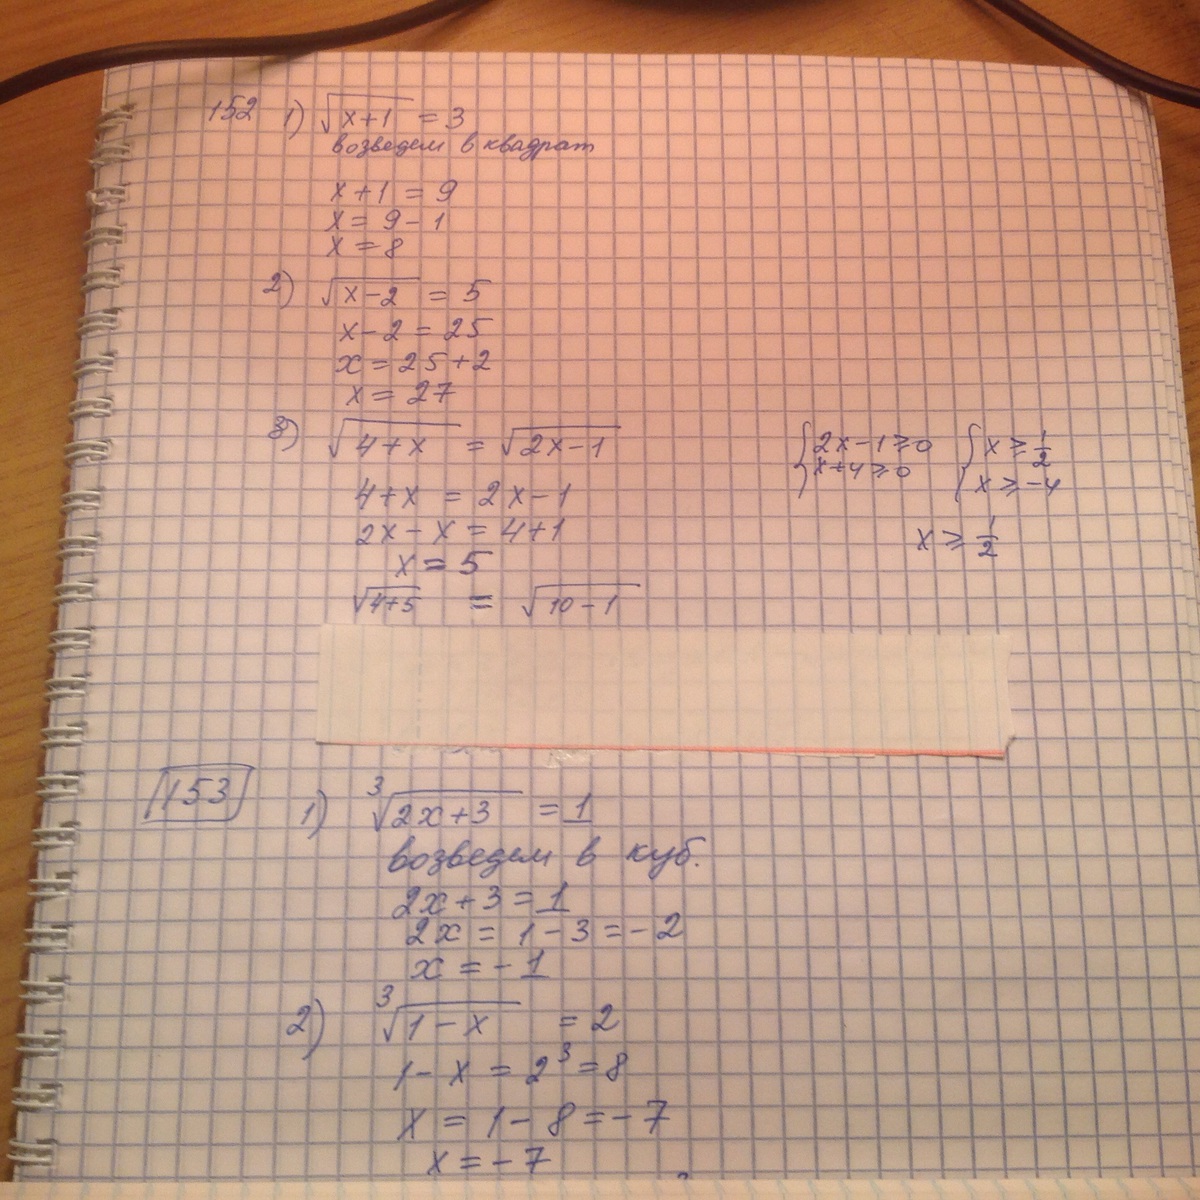 152 1) √(x+1) = 3
возведем в квадрат
x+1 = 9
x = 9-1
x = 8
2) √(x-2) = 5
x-2 = 25
x = 25+2
x = 27
3) √(4+x) = √(2x-1)
{2x-1≥0 {x≥1/2
x+4≥0 x≥-4
4+x = 2x-1
2x-x = 4+1
x≥1/2
x = 5
√(4+5) = √(10-1)
153 1) ∛(2x+3) = 1
возведем в куб.
2x+3=1
2x = 1-3=-2
x = -1
2) ∛(1-x) = 2
1-x = 2³=8
x = 1-8=-7
x = -7